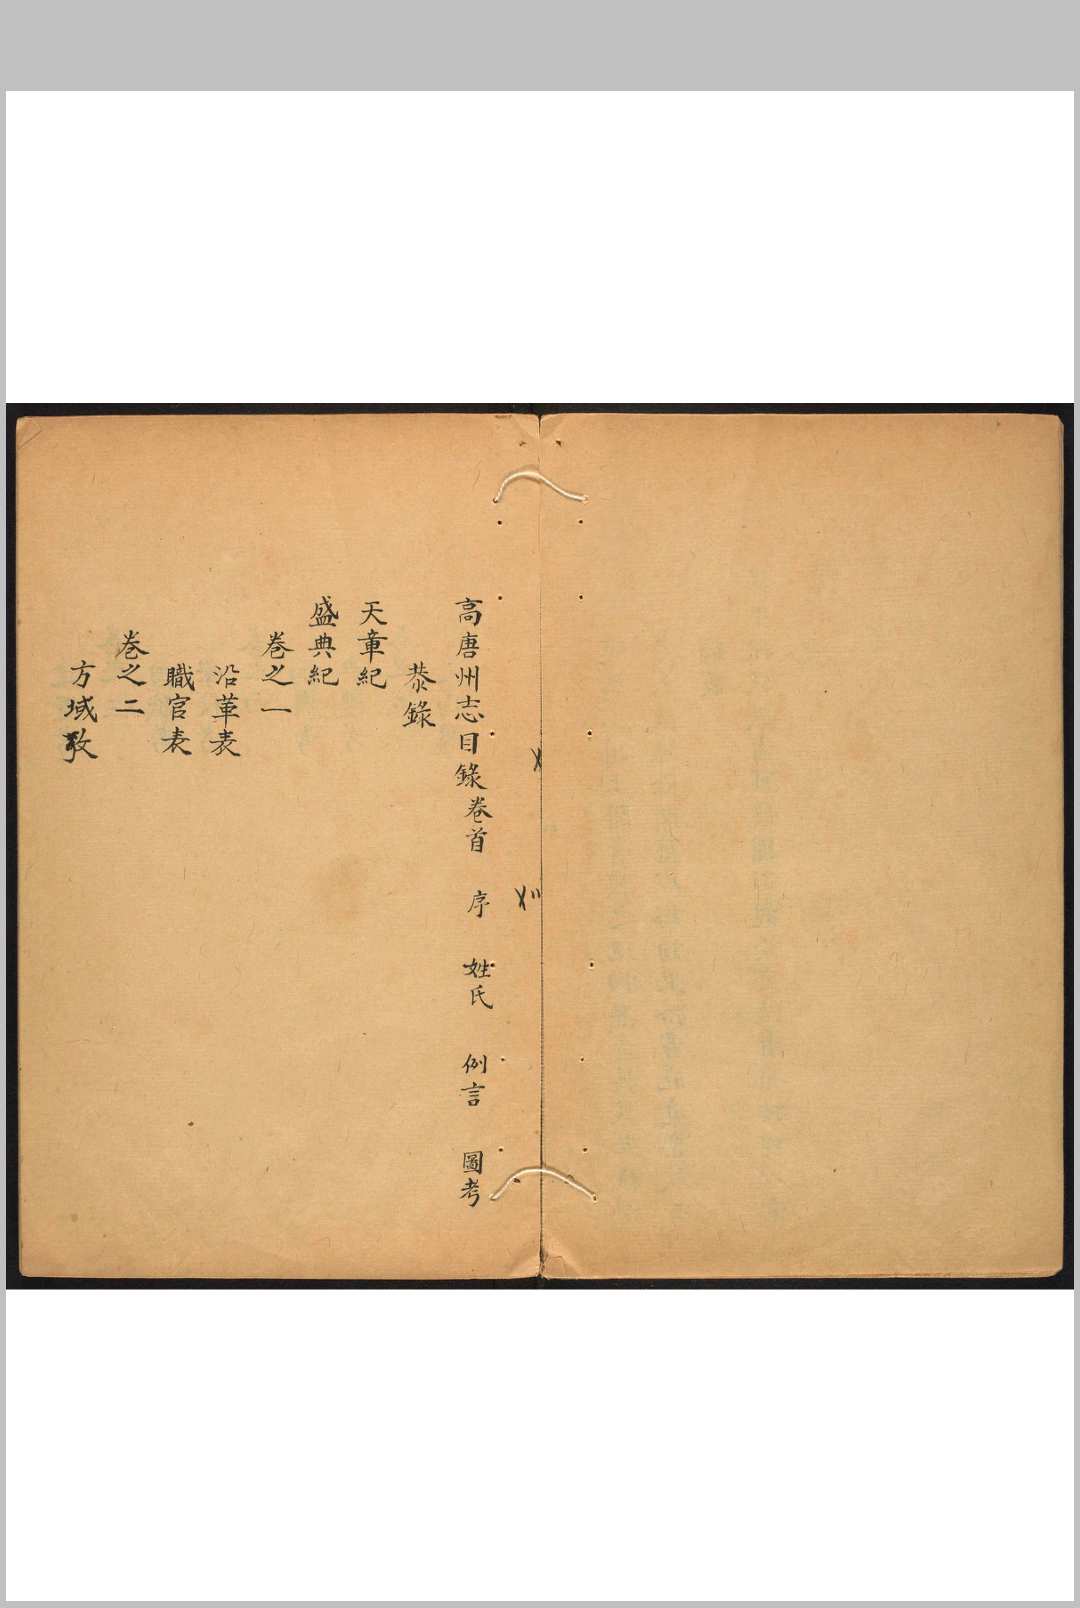 高唐州志目錄卷首 序 姓氏 例言 圖考
恭錄
天章紀
盛典紀
卷之一
沿革表
職官表
卷之二
方域攷